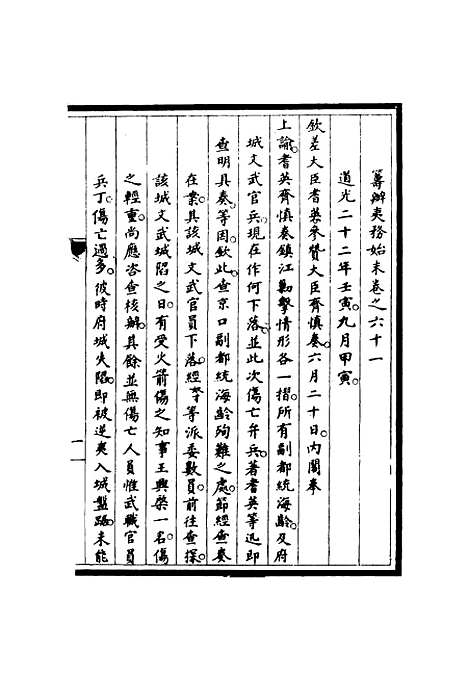 籌辦夷務始末卷之六十一
道光二十二年壬寅。九月甲寅。
欽差大臣耆英參贊大臣齊慎奏。六月二十日。內閣奉
上諭。耆英齊慎奏鎮江勦擊情形各一摺。所有副都統海齡。及府
城文武官兵。現在作何下落。並此次傷亡弁兵。著耆英等迅即
查明具奏。等因。欽此。查京口副都統海齡殉難之處。節經查奏
在案。其該城文武官員下落。經等派委數員。前往查探。
該城文武城陷之日。有受火箭傷之知事王興榮一名。傷
之輕重。尚應咨查核辦。其餘並無傷亡人員。惟武職官員
兵丁。傷亡過多。彼時府城失陷。即被逆夷入城盤踞。未能
一